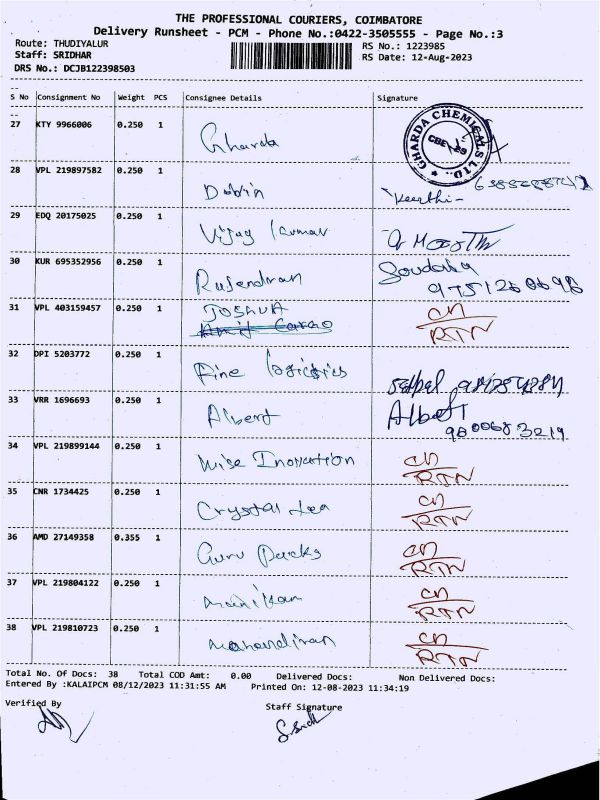 THE PROFESSIONAL COURIERS, COIMBATORE
Delivery Runsheet - PCM - Phone No.:0422-3505555 - Page No.:3
Route: THUDIYALUR RS No.: 1223985
Staff: SRIDHAR RS Date: 12-Aug-2023
DRS No.: DCJB122398503
S No Consignment No Weight PCS Consignee Details Signature
27 KTY 9966006 0.250 1 Gharda GHARDA CHEMICALS LTD.,
28 VPL 219897582 0.250 1 Dobin Keerthi-
29 EDQ 20175025 0.250 1 Vijay Kumar
30 KUR 695352956 0.250 1 Rajendiran
31 VPL 403159457 0.250 1 JOSHUA CD
RTN
32 DPI 5203772 0.250 1 Fine logistics
33 VRR 1696693 0.250 1 Albert Albert
9800683219
34 VPL 219899144 0.250 1 Wise Inovation CD
RTN
35 CNR 1734425 0.250 1 Crystal CD
RTN
36 AMD 27149358 0.355 1 Guru Packs CD
RTN
37 VPL 219804122 0.250 1 Manikam CD
RTN
38 VPL 219810723 0.250 1 CD
RTN
Total No. Of Docs: 38 Total COD Amt: 0.00 Delivered Docs: Non Delivered Docs:
Entered By :KALAIPCM 08/12/2023 11:31:55 AM Printed On: 12-08-2023 11:34:19
Verified By Staff Signature